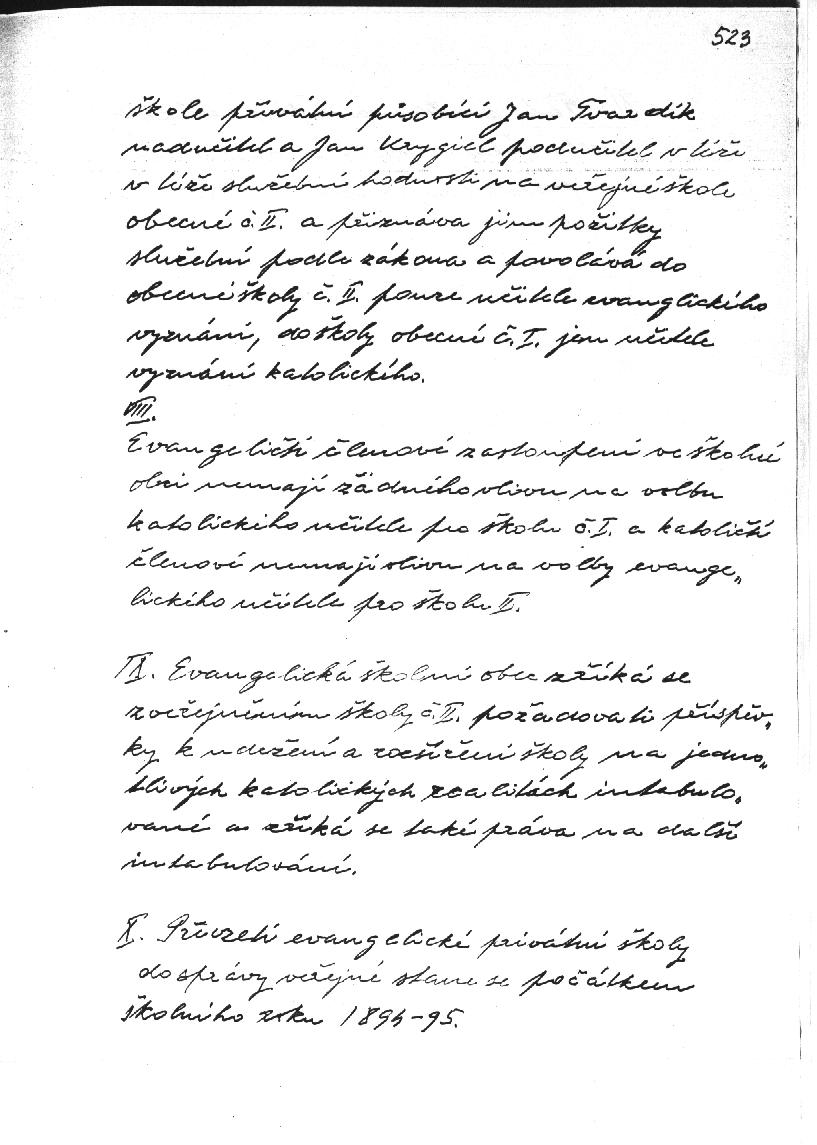 523
škole přivátní působící Jan Tvardik
nadučitel a Jan Krygiel podučitel v téže
v téže služební hodnosti na veřejné škole
obecné č. II. a přiznáva jim požitky
služební podle zákona a povolává do
obecné školy č. II. pouze učitele evanglického
vyznání, do školy obecné č. I. jen učitele
vyznání katolického.
VIII.
Evangeličtí členové zastoupení ve školní
obci nemají žádného vlivu na volbu
katolického učitele pro školu č. I. a katoličtí
členové nemají vlivu na volby evange„
lického učitele pro školu II.
IX. Evangelická školní obec zříká se
zveřejněním školy č. II. požadovati příspěv„
ky k udržení a rozšíření školy na jedno„
tlivých katolických realitách intabulo„
vané a zříká se také práva na další
intabulování.
X. Převzetí evangelické privátní školy
do správy veřejné stane se počátkem
školního roku 1894-95.